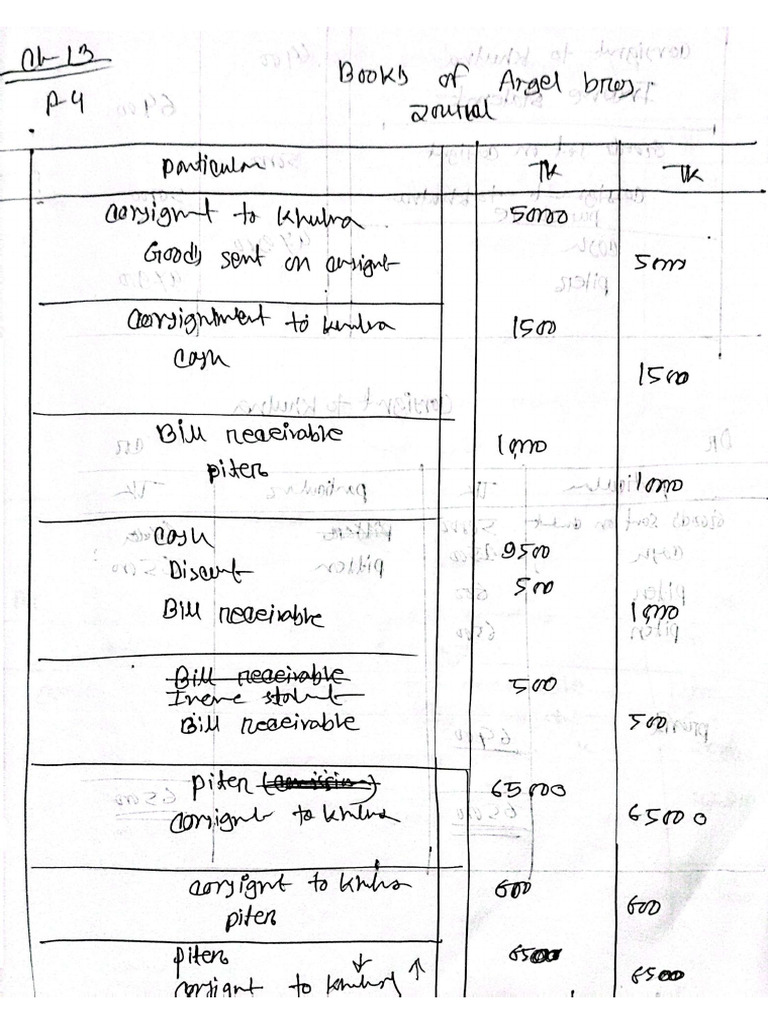 Ch-13
P-4
Books of Argel bros
Journal
Particular TK TK
Consignt to Khulna 50000
Goods sent on consignt 5000
Consignment to Khulna 1500
Cash
1500
Bill receivable 1,000
piter 1000
Cash 9500
Discunt 500
Bill receivable 1000
Bill receivable 500
Income statent
Bill receivable 500
piter 65000
Consignt to Khulna 65000
Consignt to Khulna 600
piter 600
piter 6500
Consignt to Khulna 6500